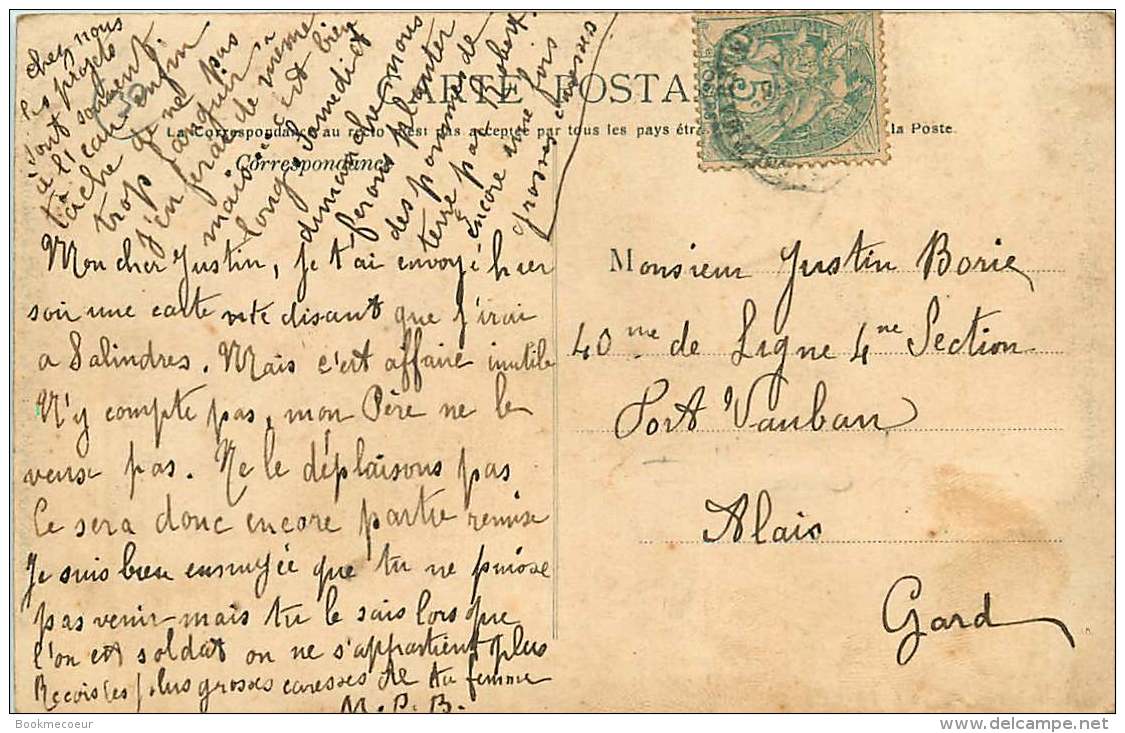 CARTE POSTALE
La Correspondance au recto n'est pas acceptée par tous les pays étra la Poste.
Correspondance
Mon cher Justin, Je t'ai envoyé hier
soir une carte te disant que j'irai
a Salindres. Mais c'est affaire inutile
N'y compte pas, mon Père ne le
veux pas. Ne le déplaisons pas
Ce sera donc encore partie remise
Je suis bien ennuyée que tu ne puisse
pas venir mais tu le sais lorsque
l'on est soldat on ne s'appartient plus
Recois les plus grosses caresses de ta femme
M. P. B.
chez nous
les projets
sont souvent
à l'eau. enfin
tâche de ne pas
trop languir
j'en ferai de même
mais c'est bien
long. Samedi et
dimanche nous
ferons planter
des pommes de
terre par Robert.
encore une fois
grosses caresses
Monsieur Justin Borie
40me de Ligne 4me Section
Fort Vauban
Alais
Gard
Bookmecoeur
delcampe.net